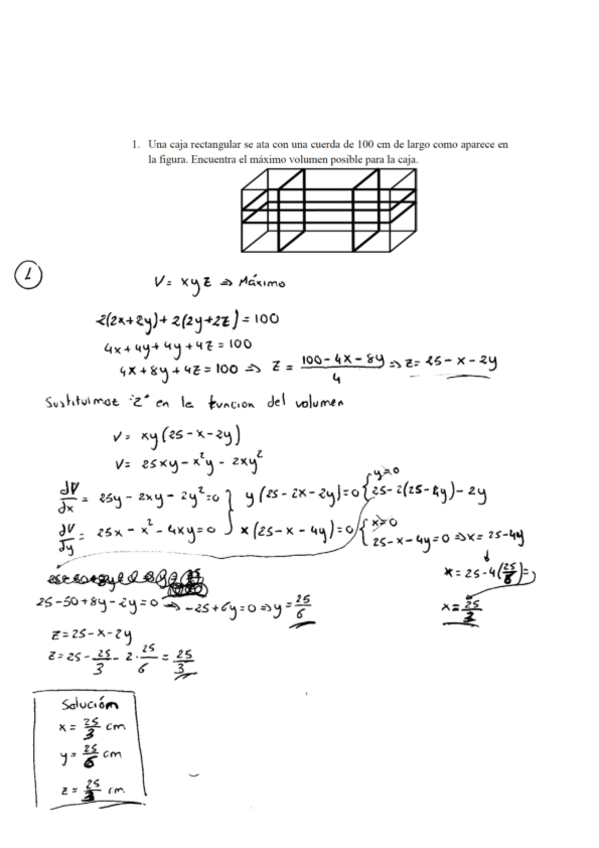 1. Una caja rectangular se ata con una cuerda de 100 cm de largo como aparece en
la figura. Encuentra el máximo volumen posible para la caja.
1
V = xyz ⇒ Máximo
2(2x+2y)+2(2y+2z)=100
4x+4y+4y+4z=100
4x+8y+4z=100 ⇒ z = (100-4x-8y)/4 ⇒ z=25-x-2y
Sustituimos "z" en la funcion del volumen
V= xy(25-x-2y)
V= 25xy-x²y-2xy²
dV/dx = 25y-2xy-2y²=0 } y(25-2x-2y)=0 { y=0
25-2(25-4y)-2y
dV/dy = 25x-x²-4xy=0 } x(25-x-4y)=0 { x=0
25-x-4y=0 ⇒ x=25-4y
x=25-4(25/6)=
x=25/3
25-50+8y-2y=0 → -25+6y=0 ⇒ y=25/6
z=25-x-2y
z=25-25/3-2·25/6=25/3
Solución
x=25/3 cm
y=25/6 cm
z=25/3 cm